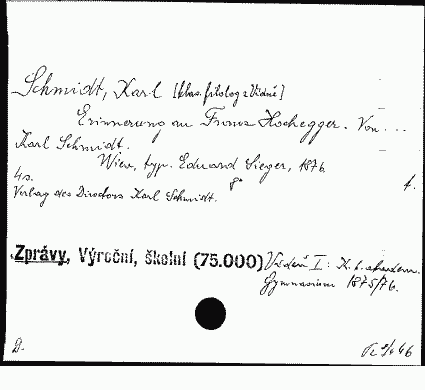 Schmidt, Karl [klas. filolog z Vídně]
Erinnerung an Franz Hochegger. Von ...
Karl Schmidt.
Wien, typ. Eduard Sieger, 1876
4 s. 8° f.
Verlag des Directors Karl Schmidt.
Zprávy, Výroční, školní (75.000) Vídeň I: K. k. akadem.
Gymnasium 1875/76.
D.